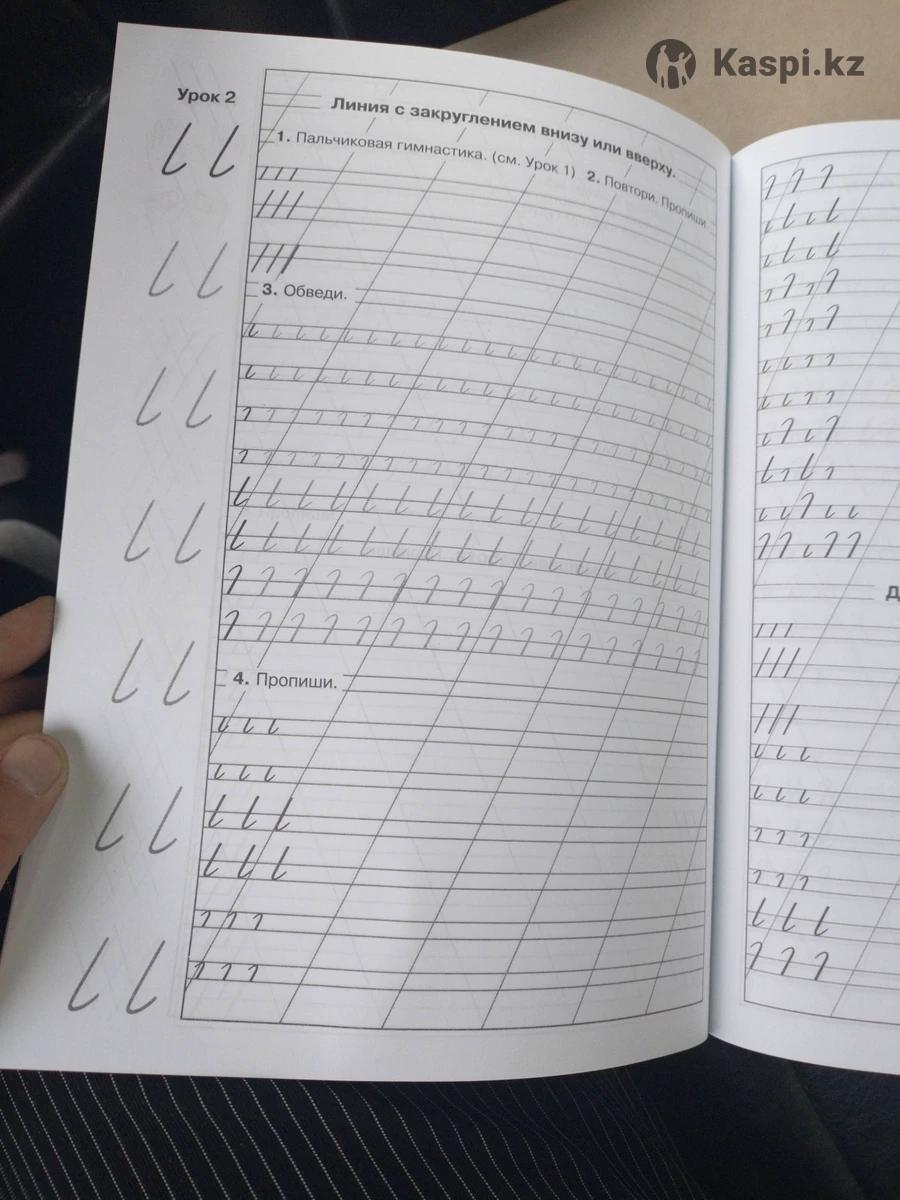 Kaspi.kz
Урок 2
Линия с закруглением внизу или вверху.
1. Пальчиковая гимнастика. (см. Урок 1) 2. Повтори. Пропиши.
3. Обведи.
4. Пропиши.
Д